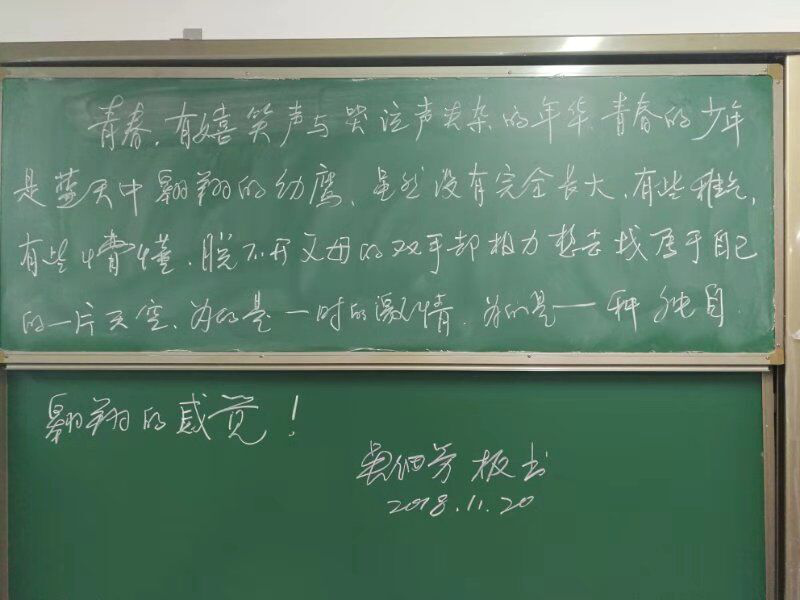 青春,有嬉笑声与哭泣声夹杂的年华.青春的少年
是蓝天中翱翔的幼鹰、虽然没有完全长大、有些稚气,
有些懵懂、脱不开父母的双手却极力想去找属于自己
的一片天空、为的是一时的激情.为的是一种独自
翱翔的感觉!
细芳 板书
2018.11.20